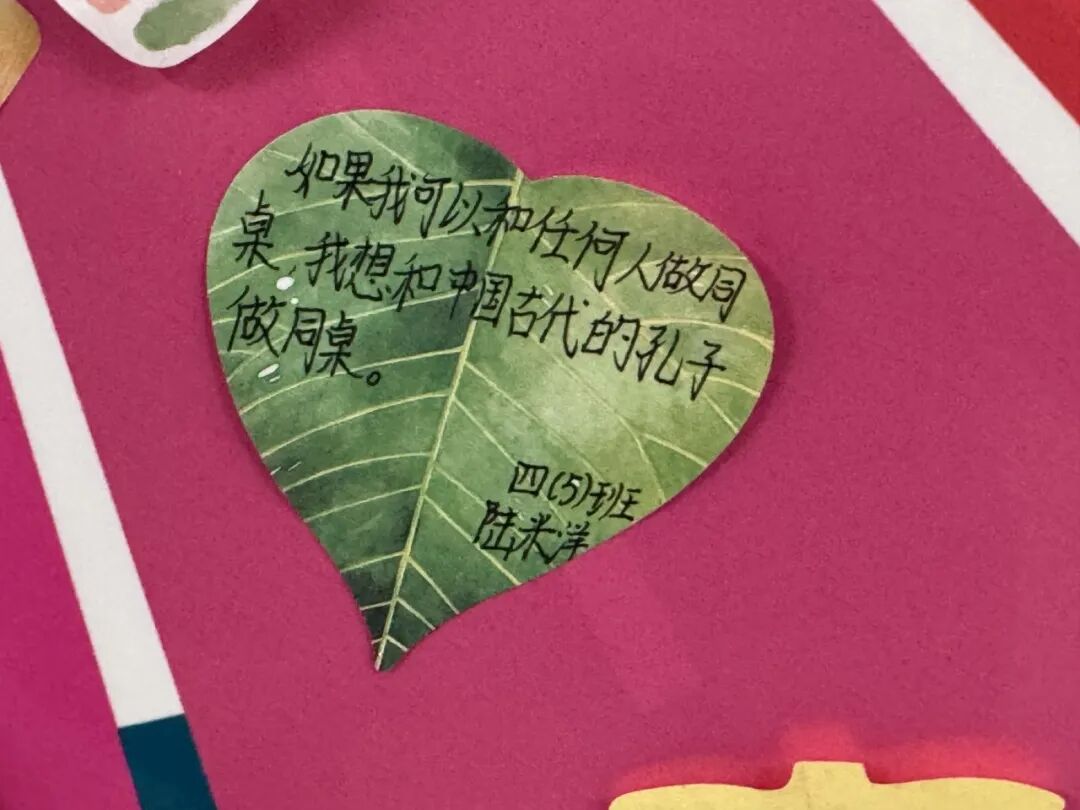 如果我可以和任何人做同
桌,我想和中国古代的孔子
做同桌。
四(5)班
陆米洋